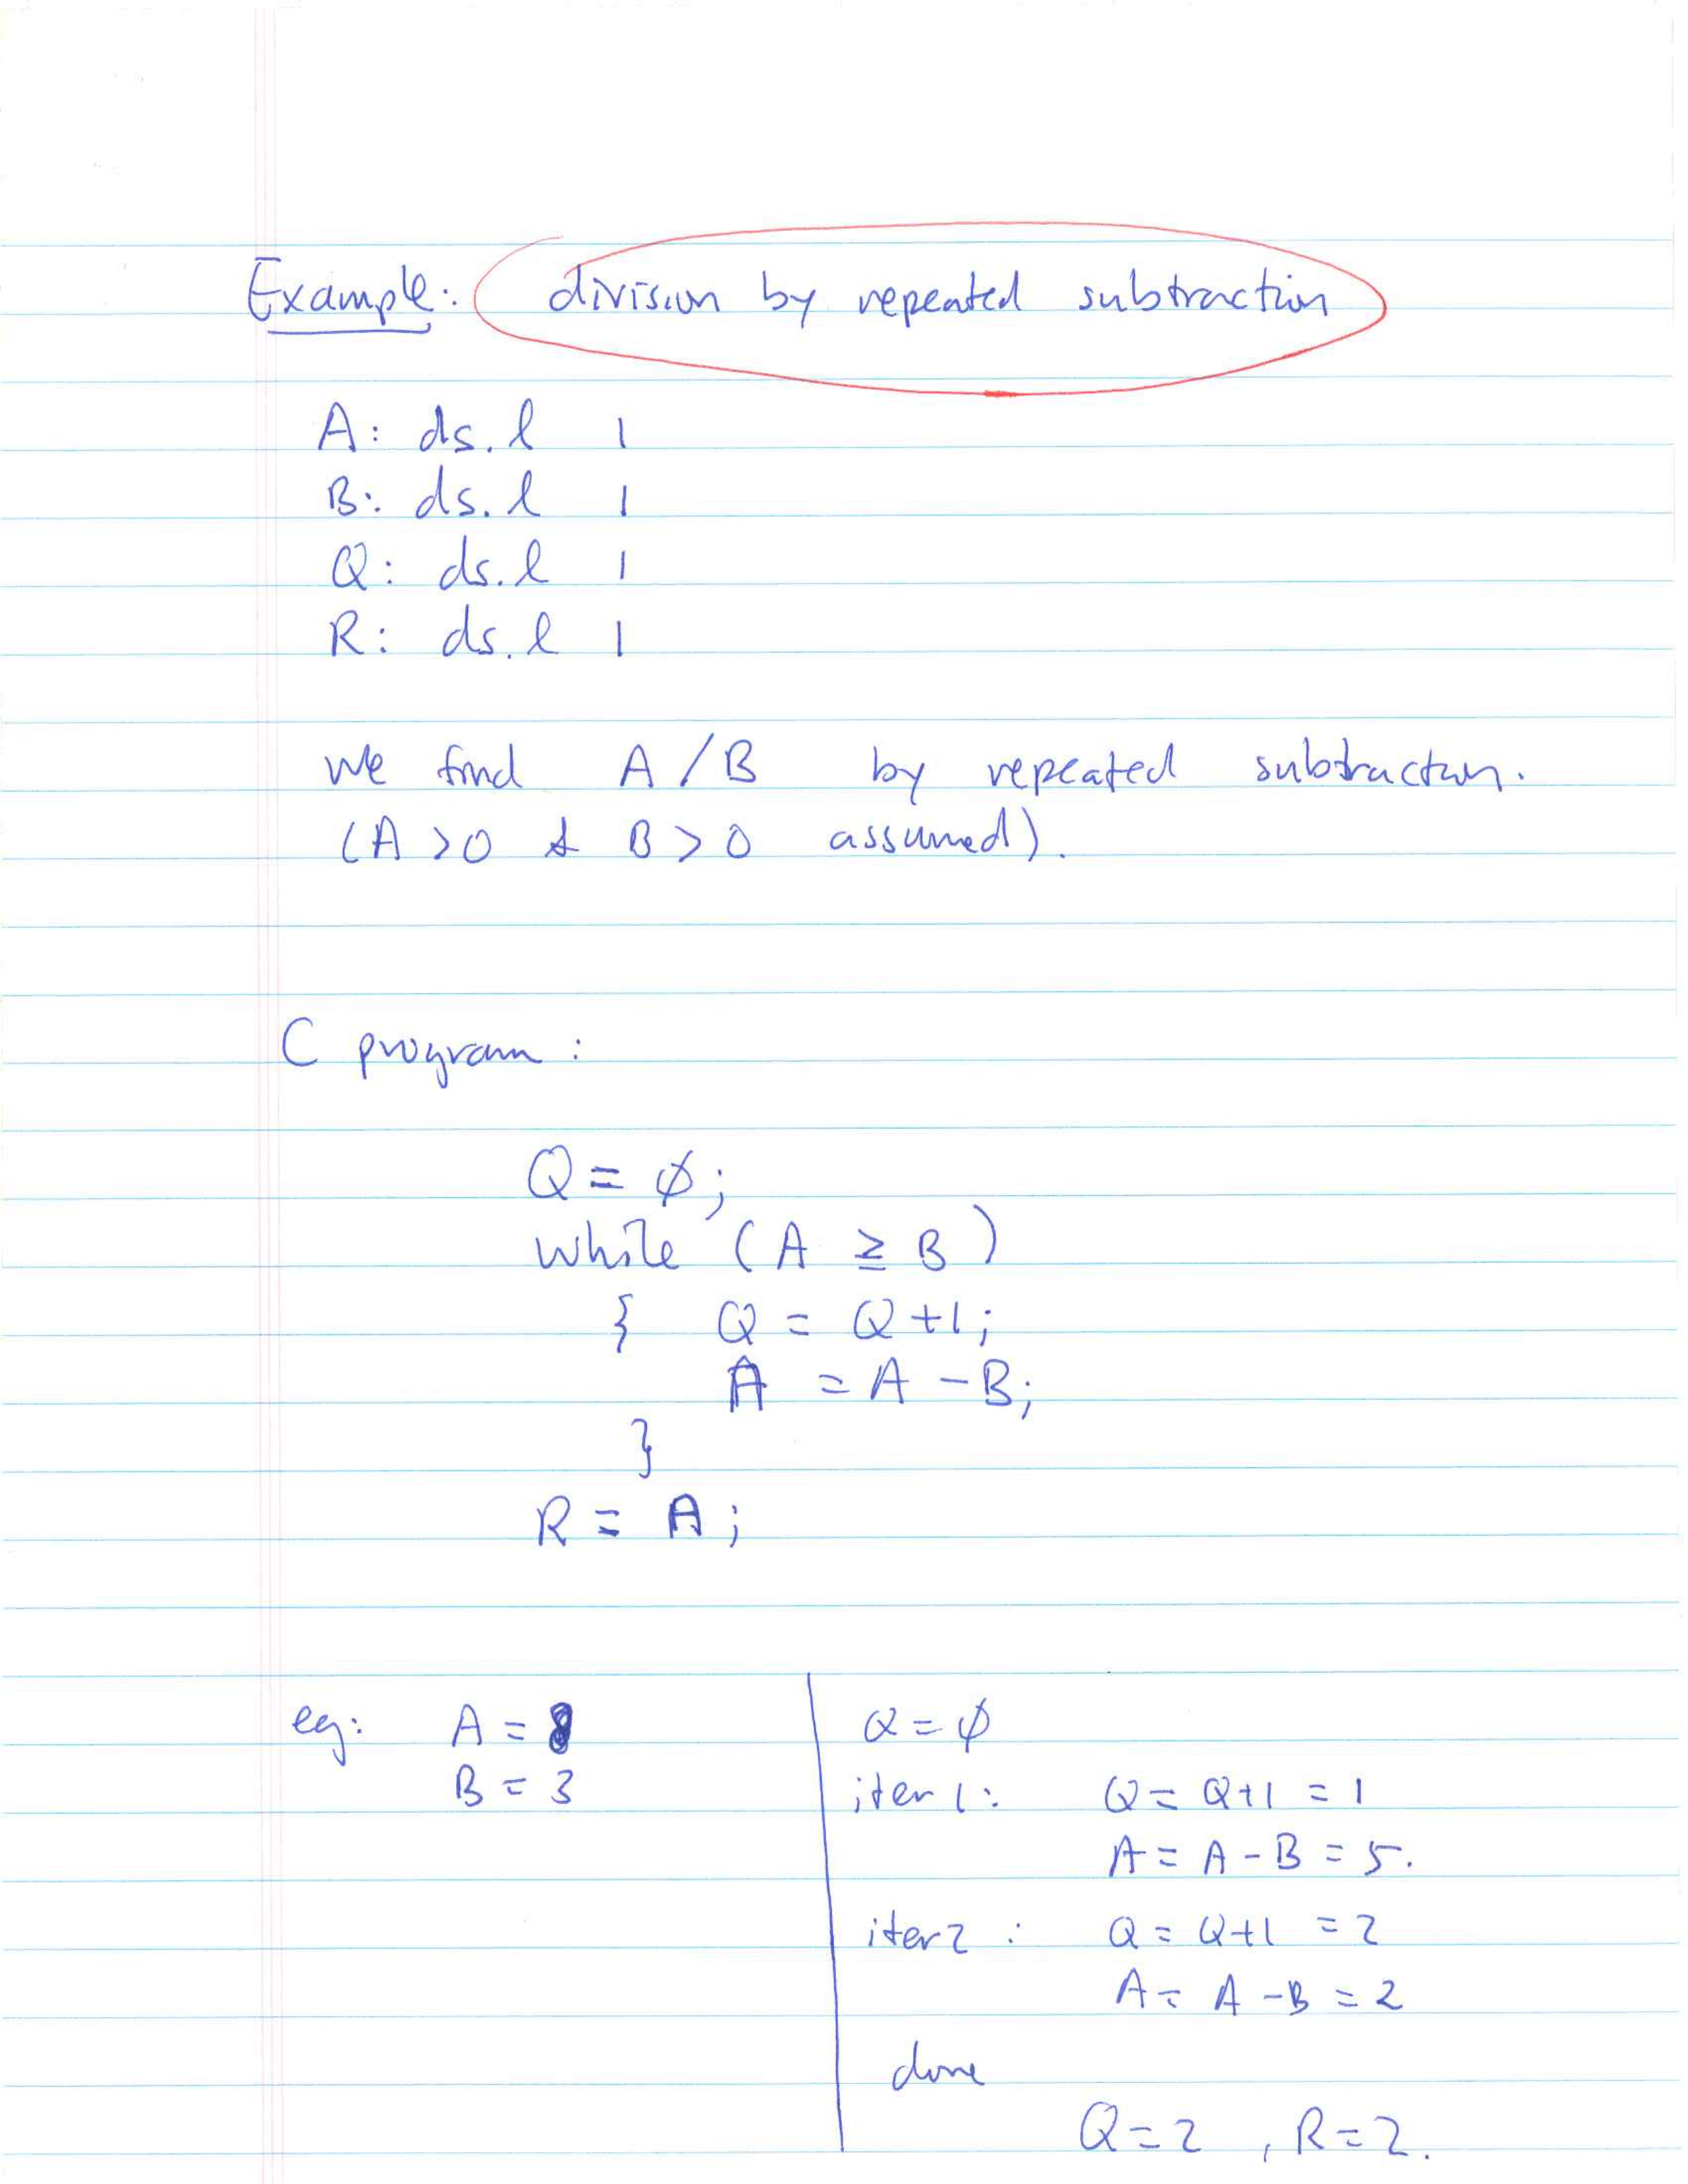 Example: division by repeated subtraction
A: ds.l 1
B: ds.l 1
Q: ds.l 1
R: ds.l 1
We find A/B by repeated subtraction.
(A>0 & B>0 assumed).
C program:
Q = ∅;
while (A ≥ B)
{ Q = Q+1;
A = A - B;
}
R = A;
eg: A = 8
B = 3
Q = ∅
iter 1: Q = Q+1 = 1
A = A - B = 5.
iter 2: Q = Q+1 = 2
A = A - B = 2
done
Q=2, R=2.